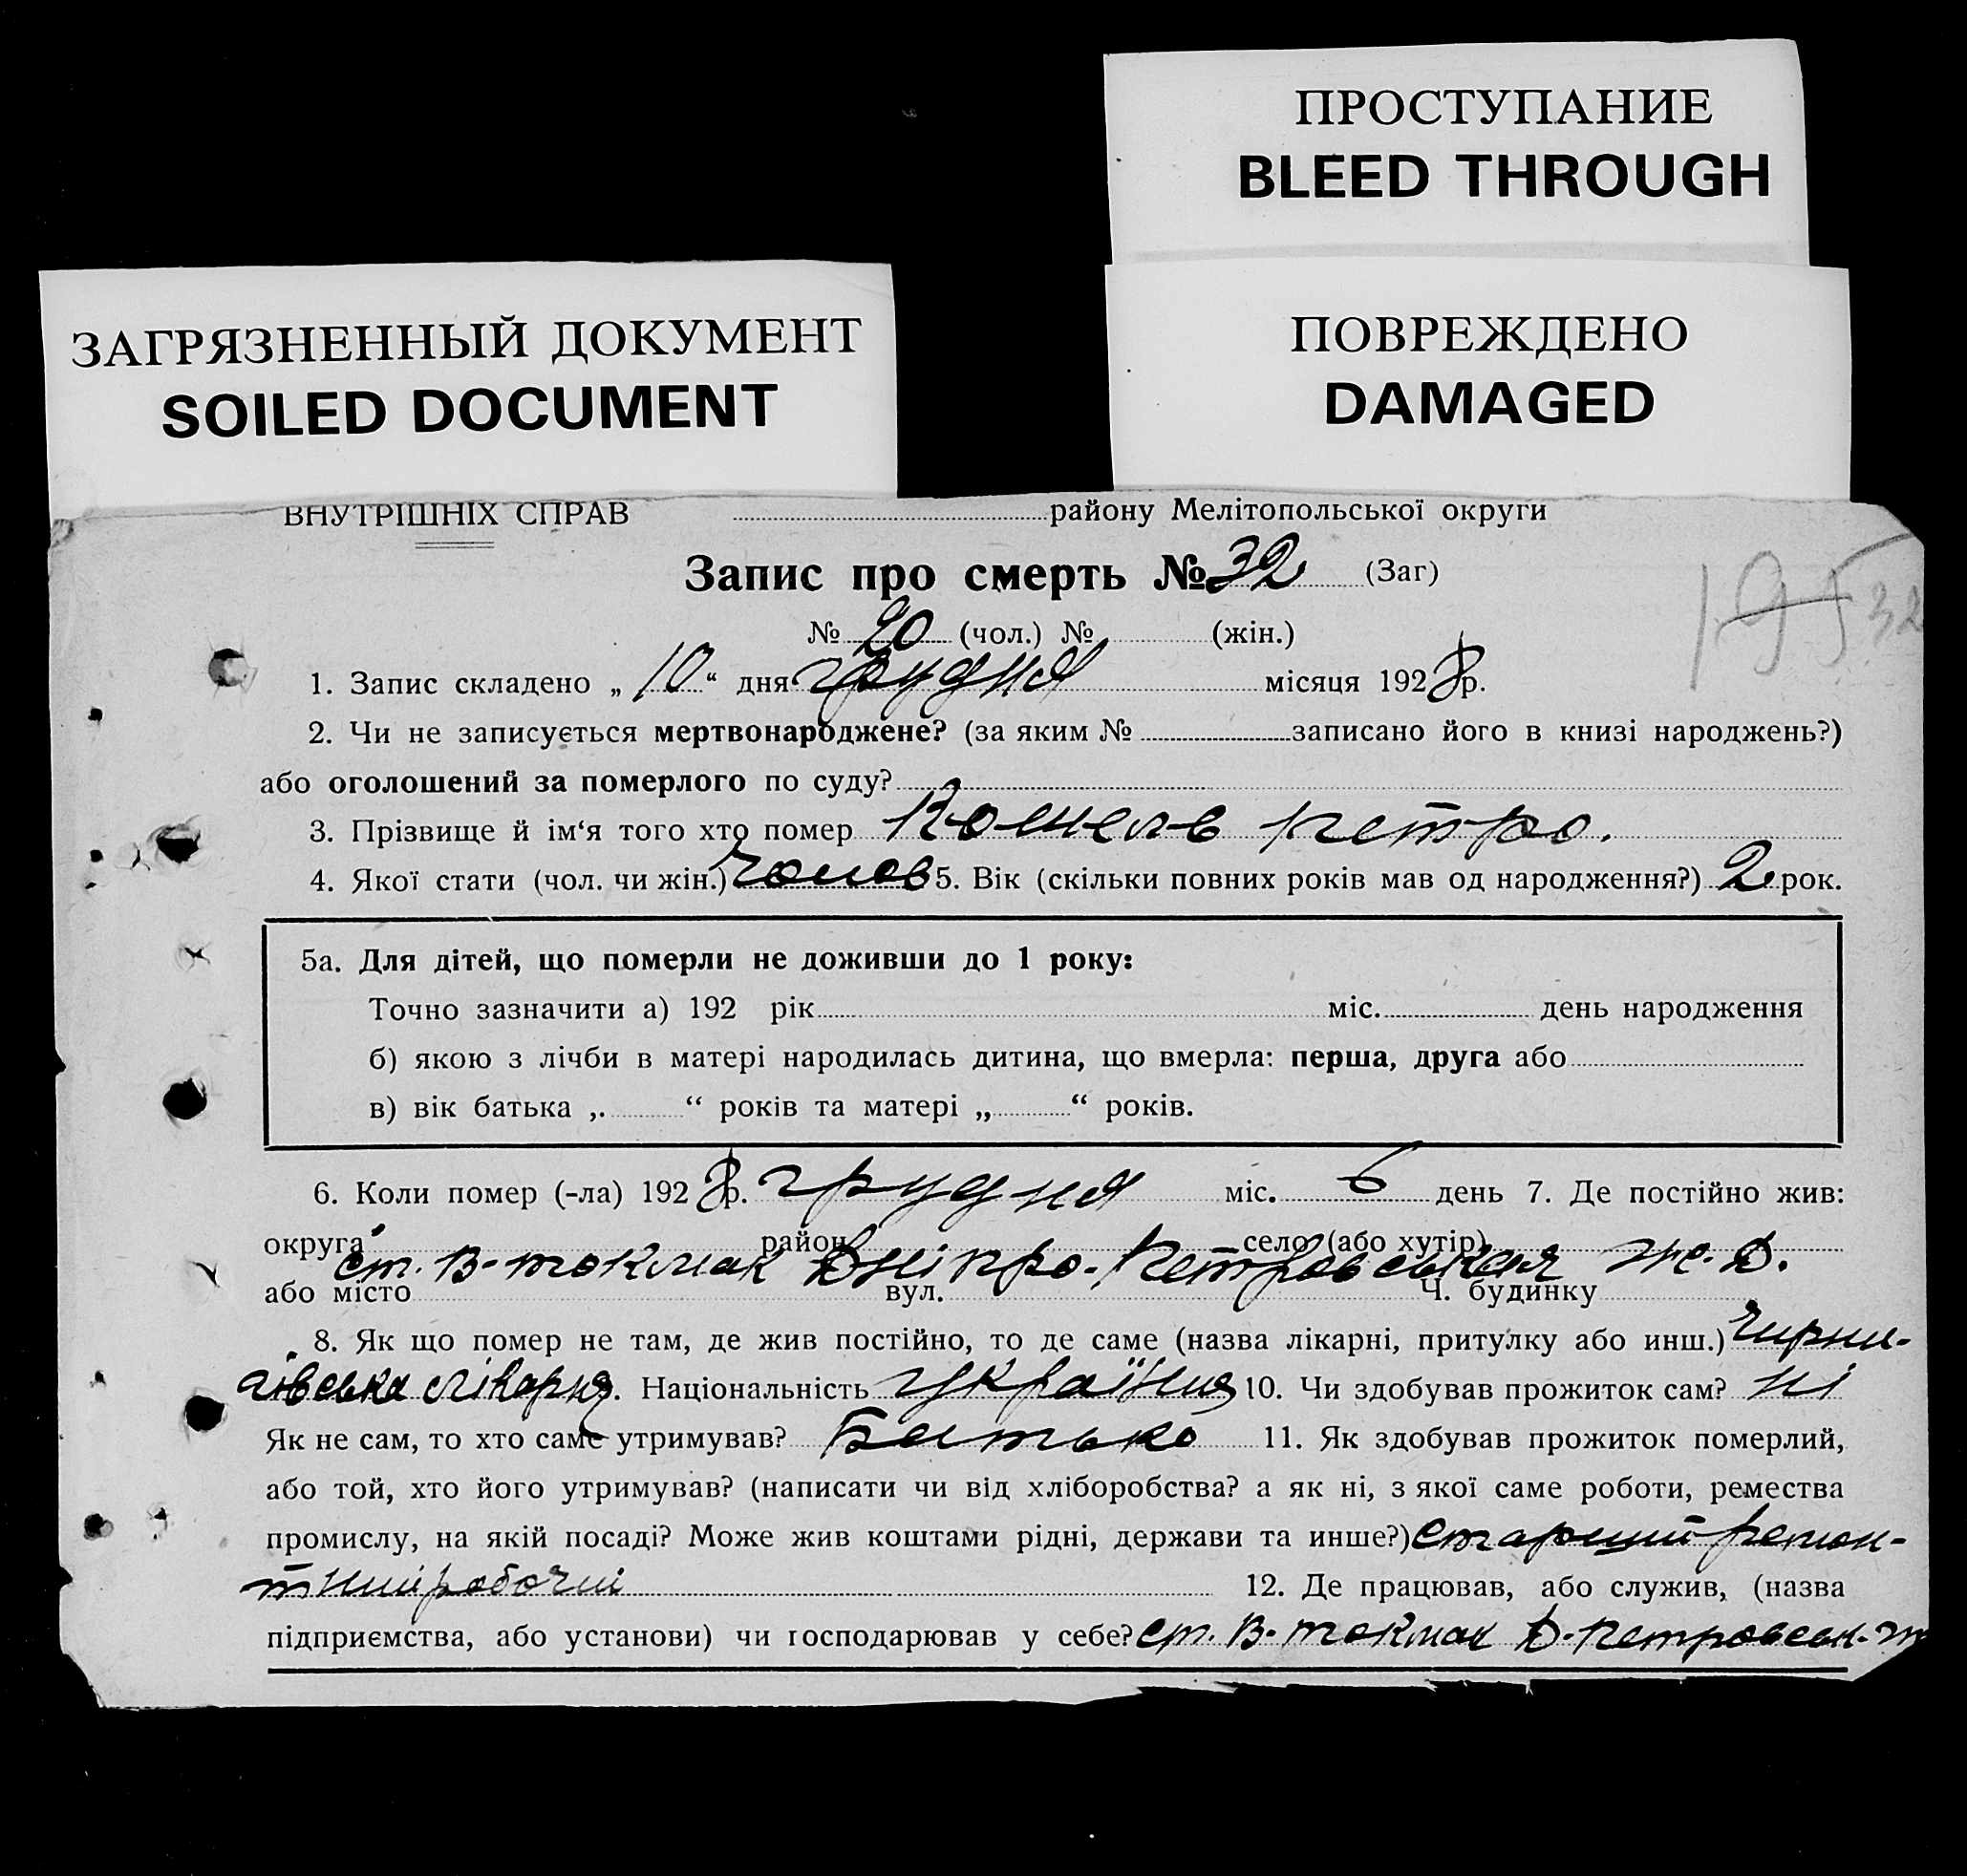 ПРОСТУПАНИЕ
BLEED THROUGH
ЗАГРЯЗНЕННЫЙ ДОКУМЕНТ
SOILED DOCUMENT
ПОВРЕЖДЕНО
DAMAGED
ВНУТРІШНІХ СПРАВ району Мелітопольської округи
Запис про смерть № 32 (Заг)
195 32
№ 20 (чол.) № (жін.)
1. Запис складено „ 10 “ дня грудня місяця 1928 р.
2. Чи не записується мертвонароджене? (за яким № записано його в книзі народжень?)
або оголошений за померлого по суду?
3. Прізвище й ім‘я того хто помер Кошель Петро.
4. Якої стати (чол. чи жін.) 5. Вік (скільки повних років мав од народження?) 2 рок.
5а. Для дітей, що померли не доживши до 1 року:
Точно зазначити а) 192 рік міс. день народження
б) якою з лічби в матері народилась дитина, що вмерла: перша, друга або
в) вік батька ,. “ років та матері „ “ років.
6. Коли помер (-ла) 1928 р. грудня міс. 6 день 7. Де постійно жив:
округа район село (або хутір)
ст. В-токмак Дніпро-Петровська ж. д.
або місто вул. Ч. будинку
8. Як що помер не там, де жив постійно, то де саме (назва лікарні, притулку або инш.) Черни-
гівська лікарня. Національність 10. Чи здобував прожиток сам? ні
Як не сам, то хто саме утримував? Батько 11. Як здобував прожиток померлий,
або той, хто його утримував? (написати чи від хліборобства? а як ні, з якої саме роботи, ремества
промислу, на якій посаді? Може жив коштами рідні, держави та инше?) старший ремон-
тний робочий 12. Де працював, або служив, (назва
підприємства, або установи) чи господарював у себе? ст. В-токмак Д-Петровськ.